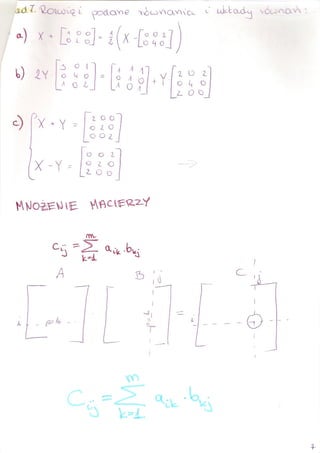 ad 7. Rozwiąż podane równania i układy równań:
a) X + [1 0 0; 0 2 0] = 1/2 (X - [0 0 2; 0 4 0])
b) 2Y [3 0 1; 0 4 0; 1 0 2] = [1 1 1; 0 1 0; 1 0 1] + Y [2 0 2; 0 4 0; 2 0 0]
c) X + Y = [2 0 0; 0 2 0; 0 0 2]
X - Y = [0 0 2; 0 2 0; 2 0 0]
MNOŻENIE MACIERZY
C_ij = Σ_{k=1}^{m} a_ik · b_kj
A B j C j
i i
=
C_ij = Σ_{k=1}^{m} a_ik · b_kj